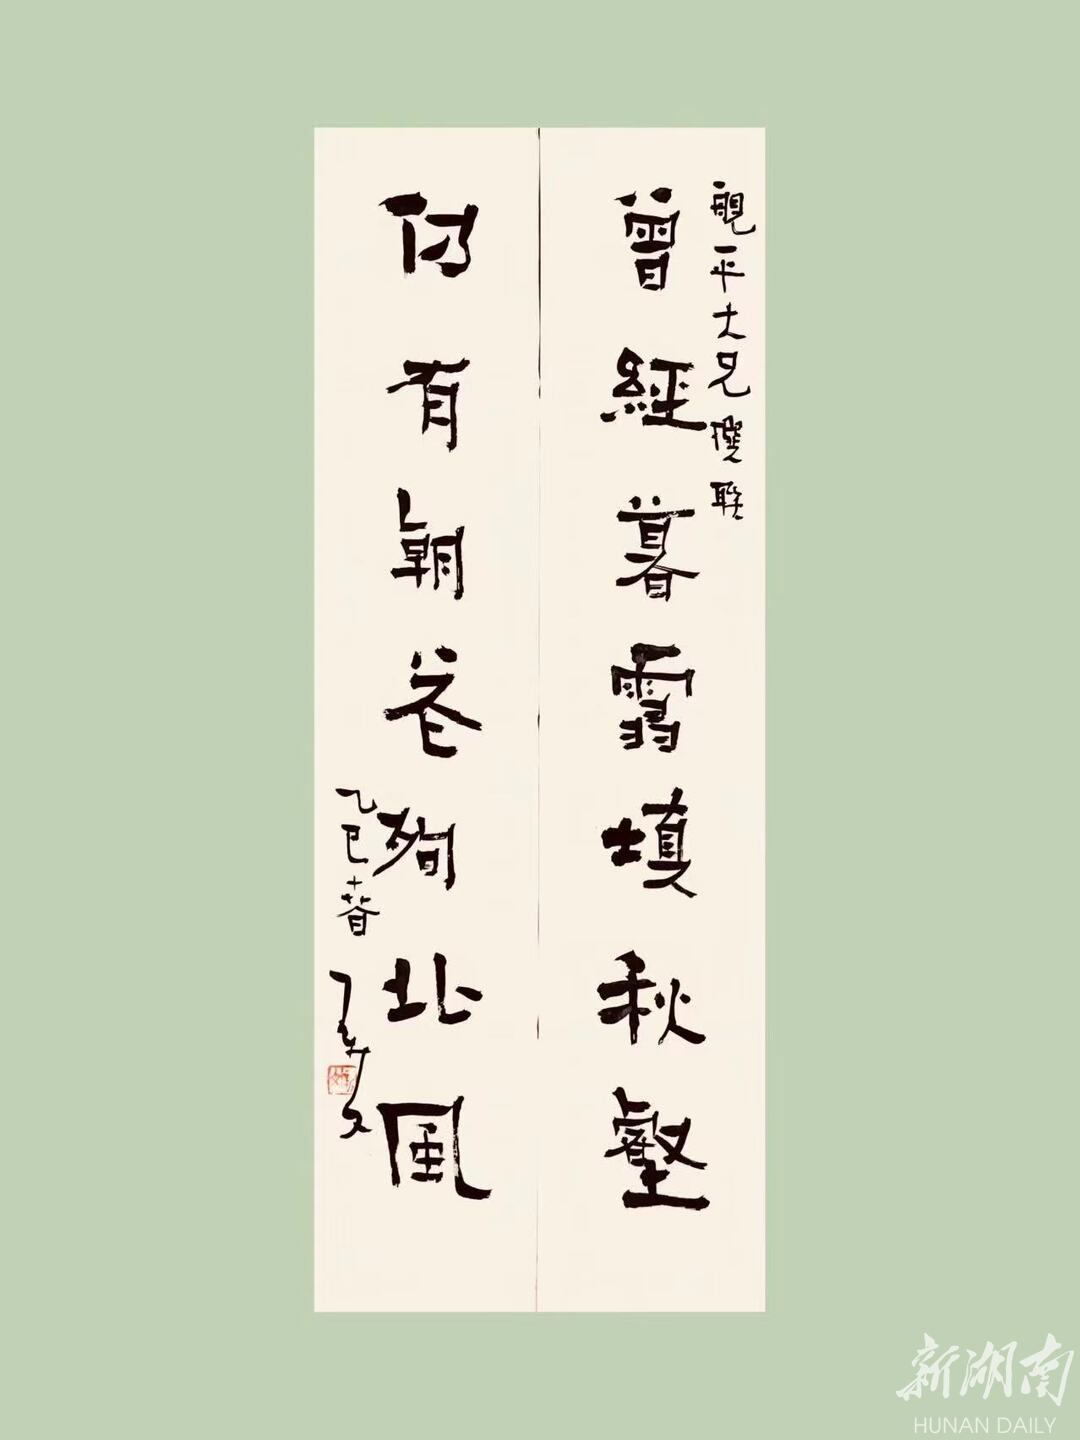 觀平大兄撰联
曾經暮雪填秋壑
仍有朝花殉北風
乙巳春
新湖南
HUNAN DAILY